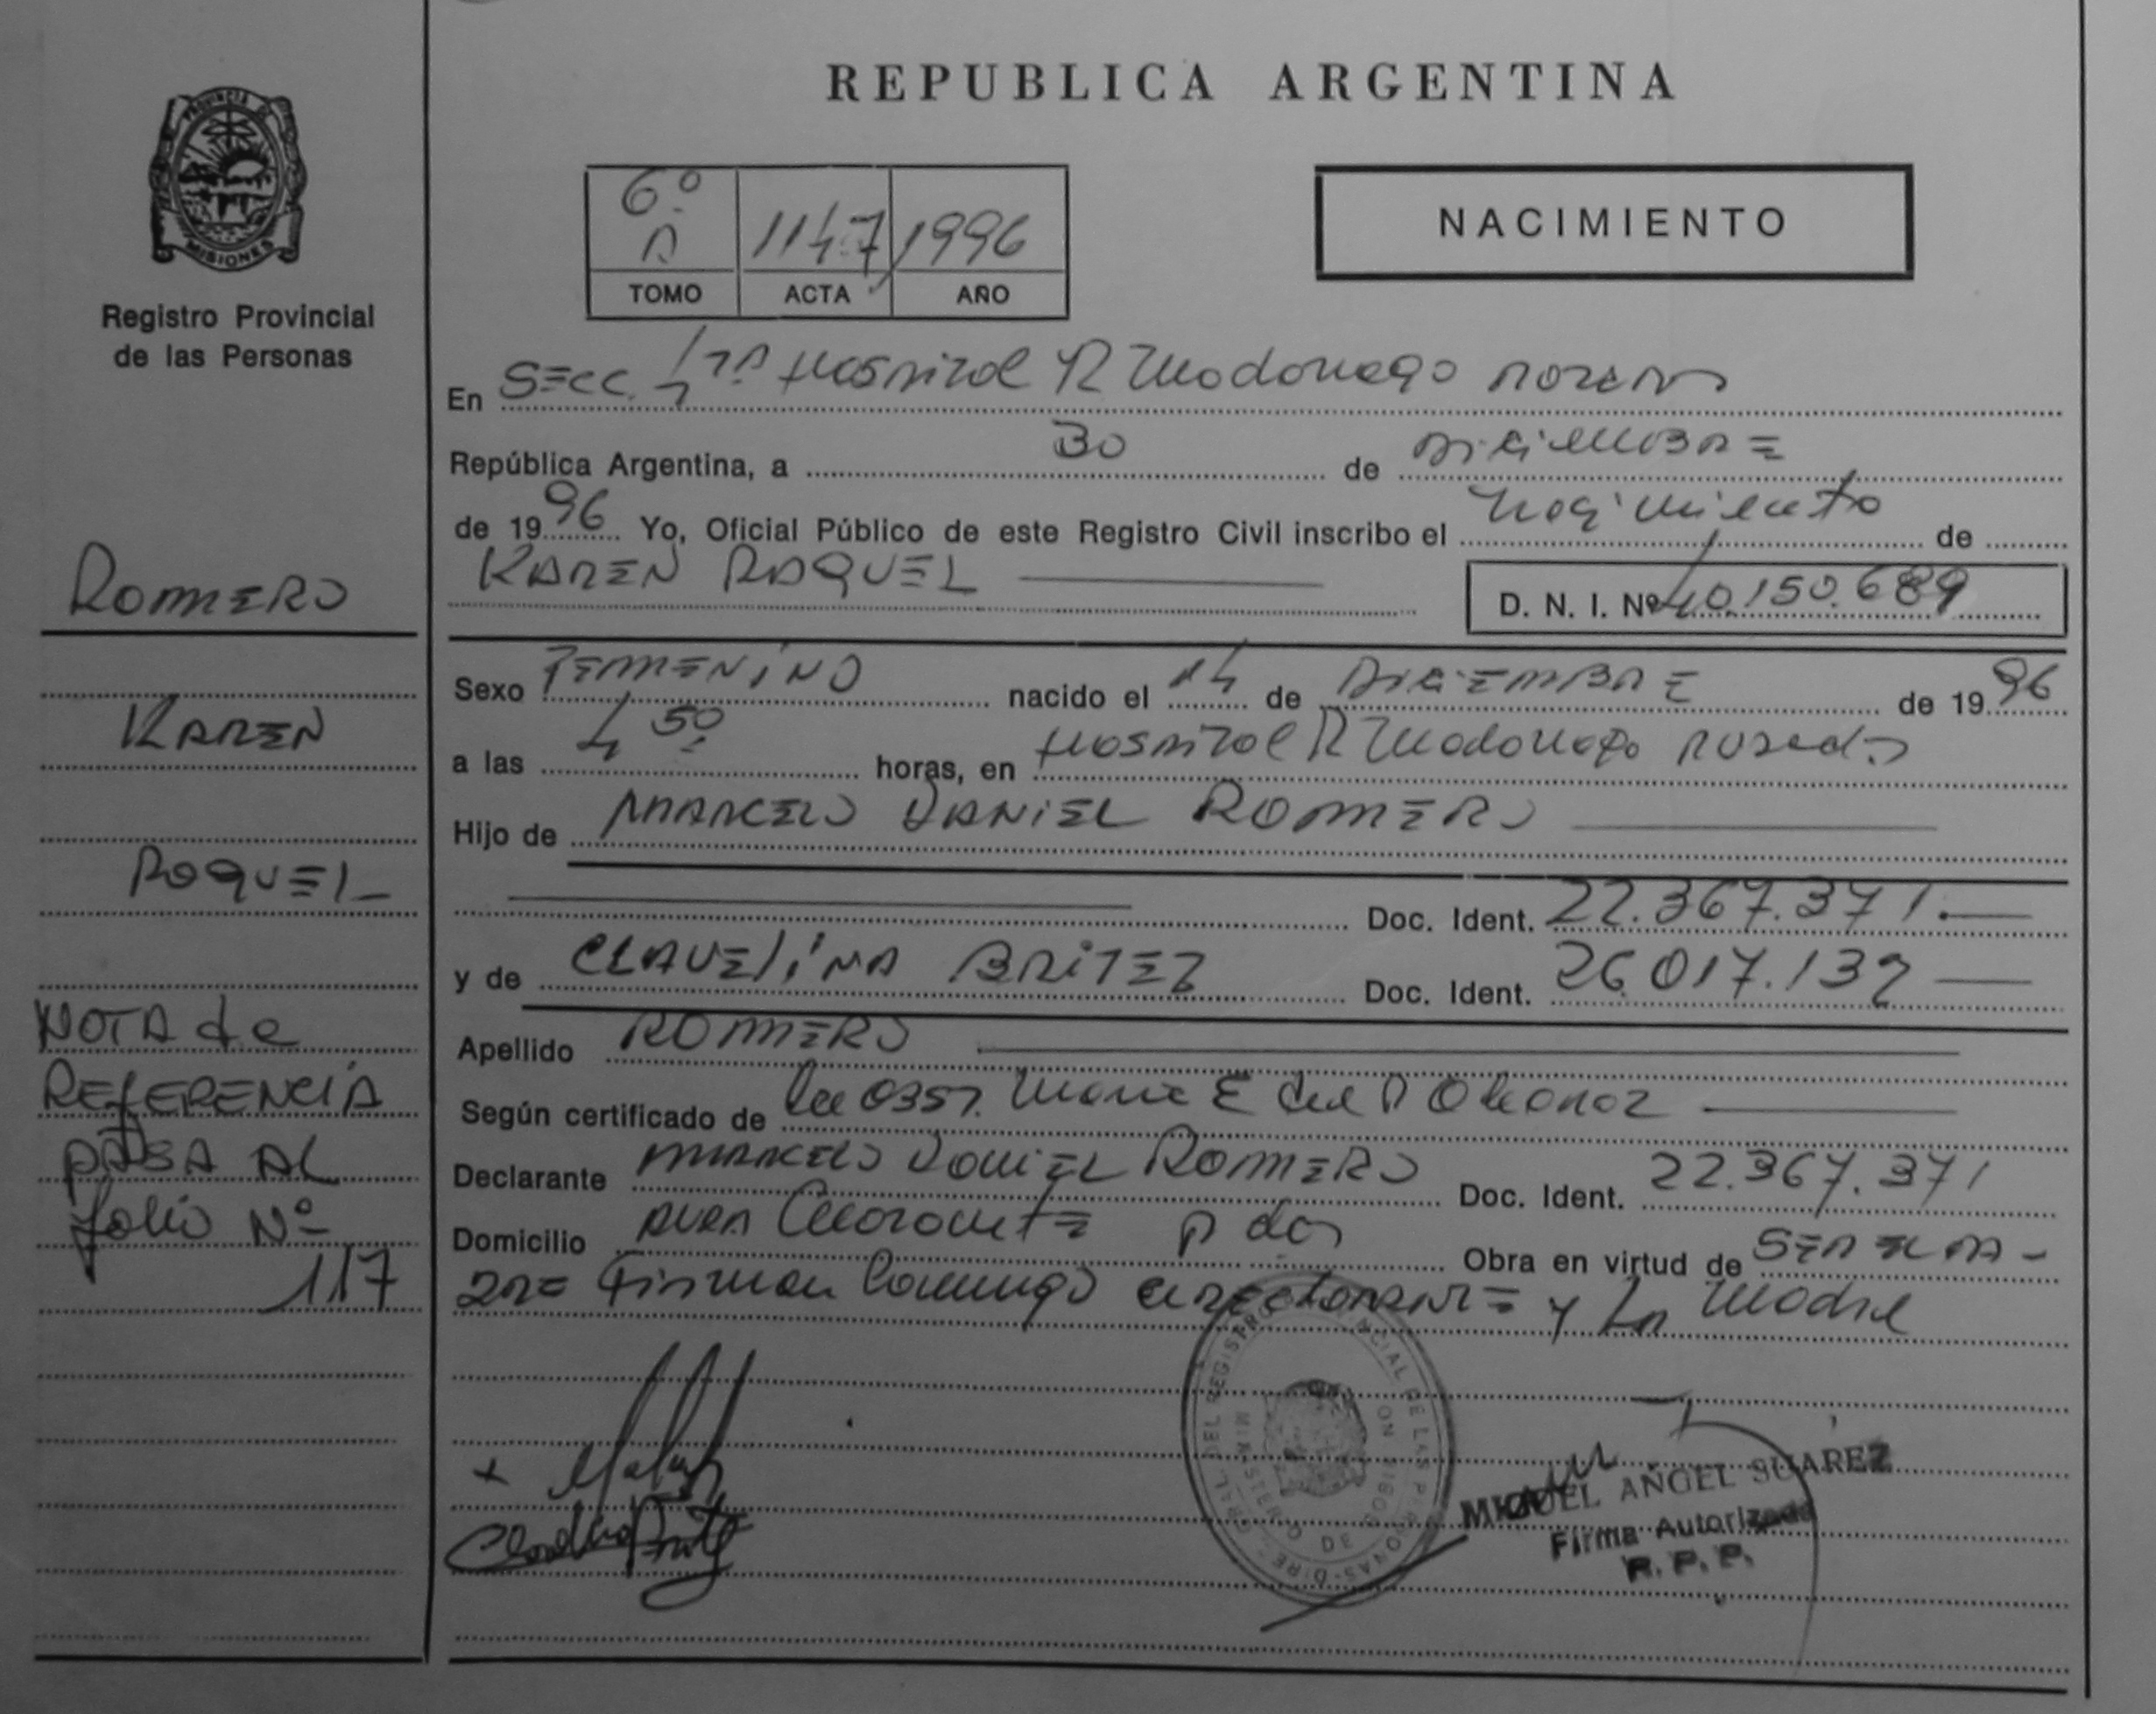 PROVINCIA DE
MISIONES
Registro Provincial
de las Personas
ROMERO
KAREN
RAQUEL
NOTA de
REFERENCIA
PASA AL
folio Nº
117
REPUBLICA ARGENTINA
6º
A
1147
1996
TOMO ACTA AÑO
NACIMIENTO
En SECC. 7ma Hospital R Madariaga
República Argentina, a 30 de DICIEMBRE
de 1996 Yo, Oficial Público de este Registro Civil inscribo el nacimiento de
KAREN RAQUEL
D. N. I. Nº 40.150.689
Sexo FEMENINO nacido el 14 de DICIEMBRE de 1996
a las 4 50 horas, en Hospital R Madariaga Posadas
Hijo de MARCELO DANIEL ROMERO
Doc. Ident. 22.367.371.
y de CLAVELINA BRITEZ Doc. Ident. 26.017.132
Apellido ROMERO
Según certificado de la Obst. Maria E del P
Declarante MARCELO DANIEL ROMERO Doc. Ident. 22.367.371
Domicilio P das Obra en virtud de
Firman Conmigo declarante y la Madre
MIGUEL ANGEL SUAREZ
Firma Autorizada
R. P. P.